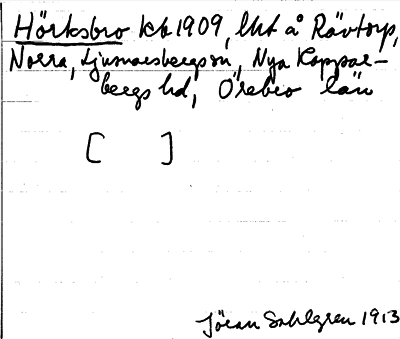 Hörksbro kb 1909, lht å Rävtorp,
Norra, Ljusnarsbergs sn, Nya Koppar-
bergs hd, Örebro län
[ ]
Jöran Sahlgren 1913